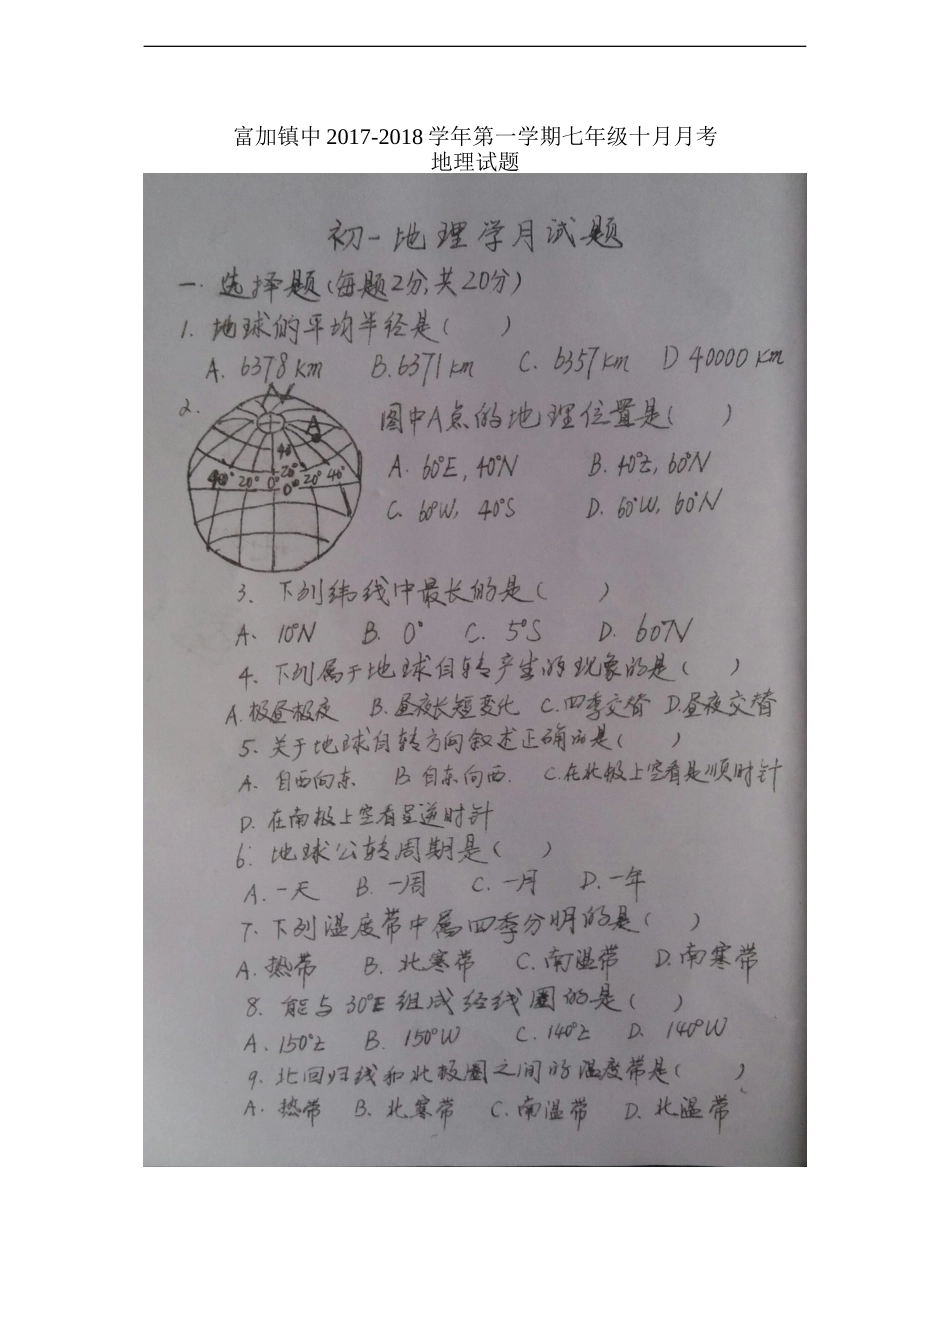 富加镇中 2017-2018 学年第一学期七年级十月月考
地理试题
初一地理学月试题
一.选择题(每题2分,共20分)
1. 地球的平均半径是( )
A. 6378km B. 6371km C. 6357km D 40000km
2. 图中A点的地理位置是( )
N
A
40°
20°
20° 0° 0° 20° 40°
A. 60°E, 40°N B. 40°E, 60°N
C. 60°W, 40°S D. 60°W, 60°N
3. 下列纬线中最长的是( )
A. 10°N B. 0° C. 5°S D. 60°N
4. 下列属于地球自转产生的现象的是( )
A.极昼极夜 B.昼夜长短变化 C.四季交替 D.昼夜交替
5. 关于地球自转方向叙述正确的是( )
A. 自西向东 B 自东向西. C.在北极上空看是顺时针
D. 在南极上空看呈逆时针
6. 地球公转周期是( )
A. 一天 B. 一周 C. 一月 D. 一年
7. 下列温度带中属四季分明的是( )
A. 热带 B. 北寒带 C. 南温带 D. 南寒带
8. 能与30°E组成经线圈的是( )
A. 150°E B. 150°W C. 140°E D. 140°W
9. 北回归线和北极圈之间的温度带是( )
A. 热带 B. 北寒带 C. 南温带 D. 北温带